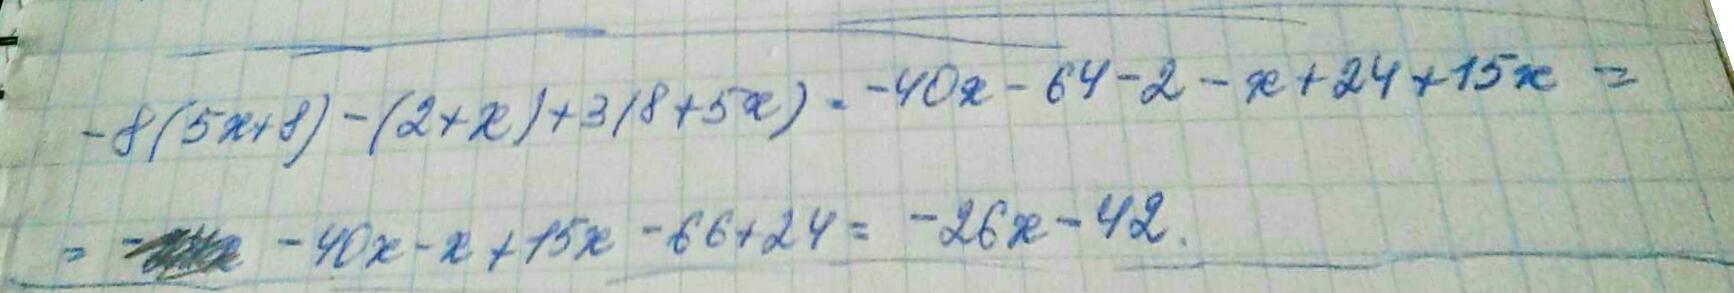 -8(5x+8)-(2+x)+3(8+5x)=-40x-64-2-x+24+15x=
= -40x-x+15x-66+24=-26x-42.